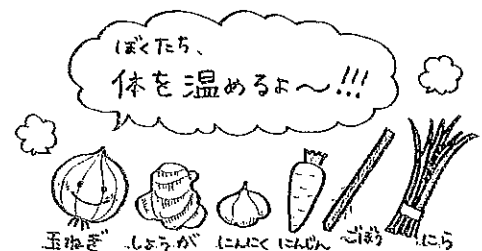 ぼくたち、
体を温めるよ〜!!!
玉ねぎ しょうが にんにく にんじん ごぼう にら